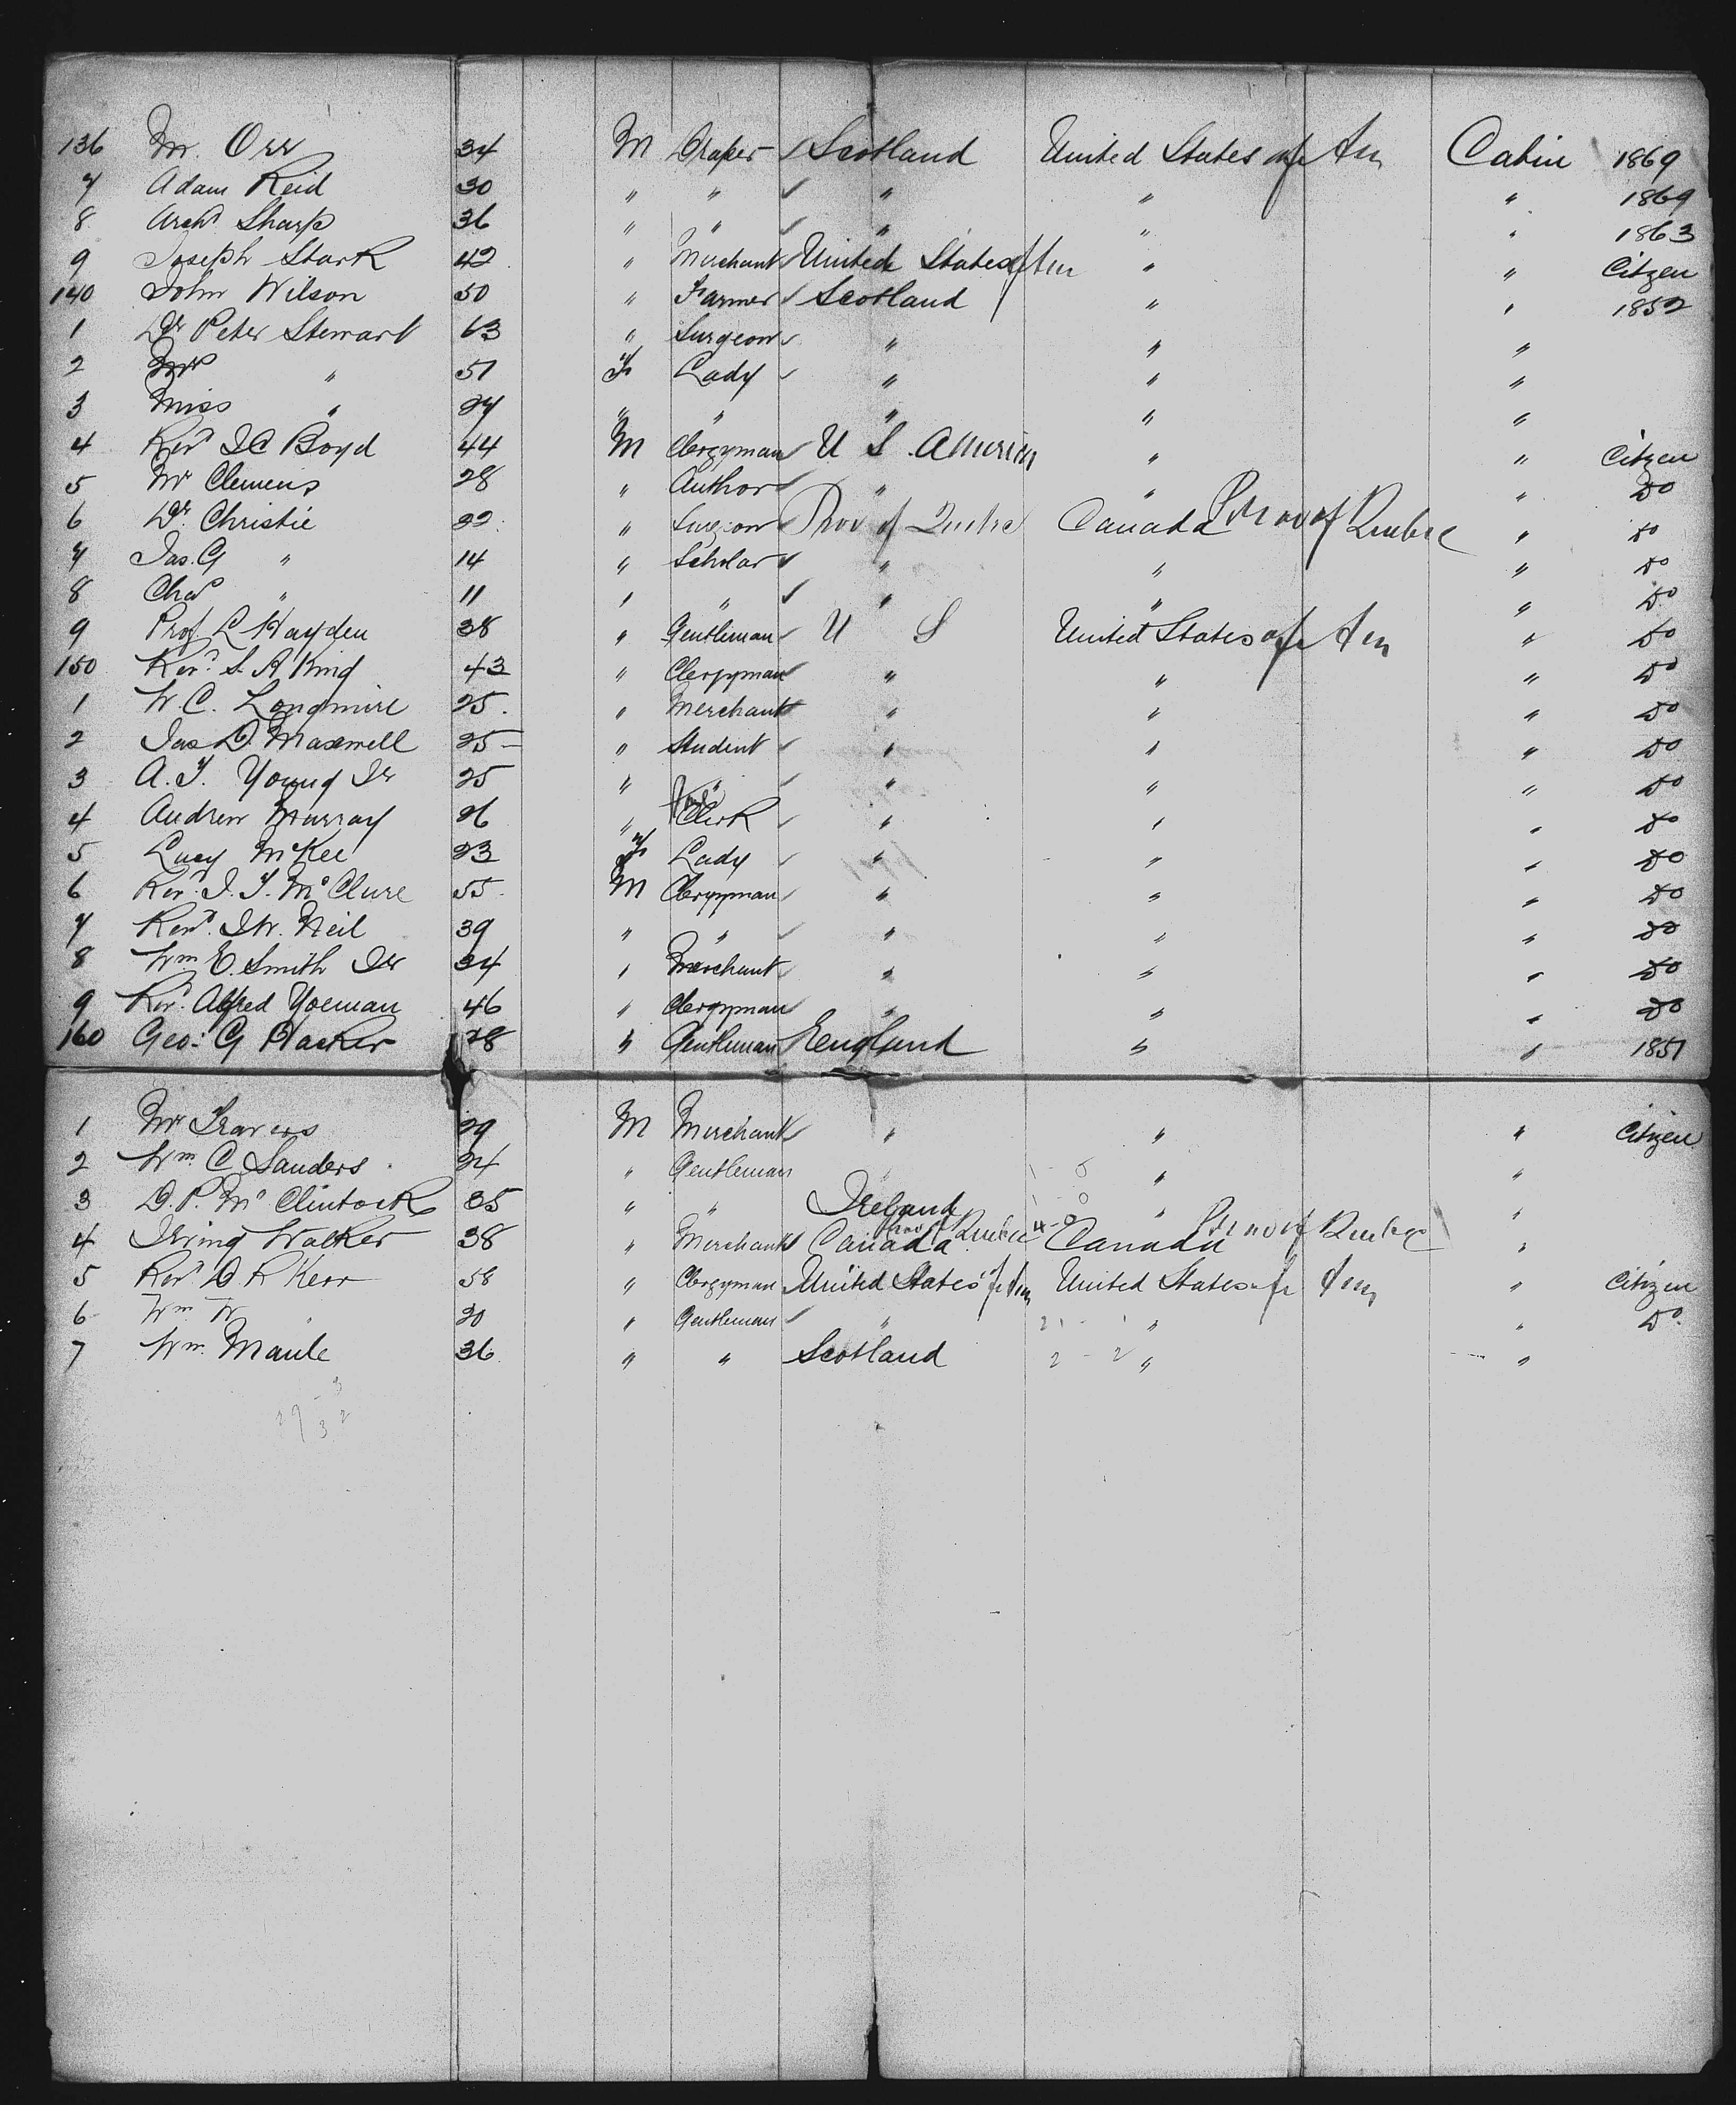 136 Mr. Orr 34 M Draper Scotland United States of Am Cabin 1869
7 Adam Reid 30 " " " " " 1869
8 Archd Sharp 36 " " " " " 1863
9 Joseph Stark 42 " Merchant United States of Am " " Citzen
140 John Wilson 50 " Farmer Scotland " " 1852
1 Dr Peter Stewart 63 " Surgeon " " "
2 Mrs " 51 F Lady " " "
3 Miss " 24 " " " " "
4 Revd J C Boyd 44 M Clergyman U S America " " Citzen
5 Mr Clemens 28 " Author " " " Do
6 Dr. Christie 22 " Surgeon Prov of Quebec Canada Prov of Quebec " Do
7 Jas. G " 14 " Scholar " " " Do
8 Chas " 11 " " " " " Do
9 Prof. L Hayden 38 " Gentleman U S United States of Am " Do
150 Revd S. A King 43 " Clergyman " " " Do
1 W. C. Longmire 25 " Merchant " " " Do
2 Jas D. Maxwell 25 " Student " " " Do
3 A. T. Young Jr 25 " " " " " Do
4 Andrew Murray 26 " Clerk " " " Do
5 Lucy McKee 23 F Lady " " " Do
6 Revd J. T. McClure 55 M Clergyman " " " Do
7 Revd. J W. Neil 39 " " " " " Do
8 Wm E. Smith Jr 34 " Merchant " " " Do
9 Revd. Alfred Yoeman 46 " Clergyman " " " Do
160 Geo. G Hacker 28 " Gentleman England " " 1851
1 Mr Travers 29 M Merchant " " " Citizen
2 Wm. C Sanders 24 " Gentleman " " "
3 D. P. McClintock 35 " " Ireland " "
4 Irving Walker 38 " Merchant Canada Prov of Quebec Canada Prov of Quebec "
5 Revd D R Kerr 58 " Clergyman United States of Am United States of Am " Citizen
6 Wm W " 20 " Gentleman " " " Do.
7 Wm. Maule 36 " " Scotland " "